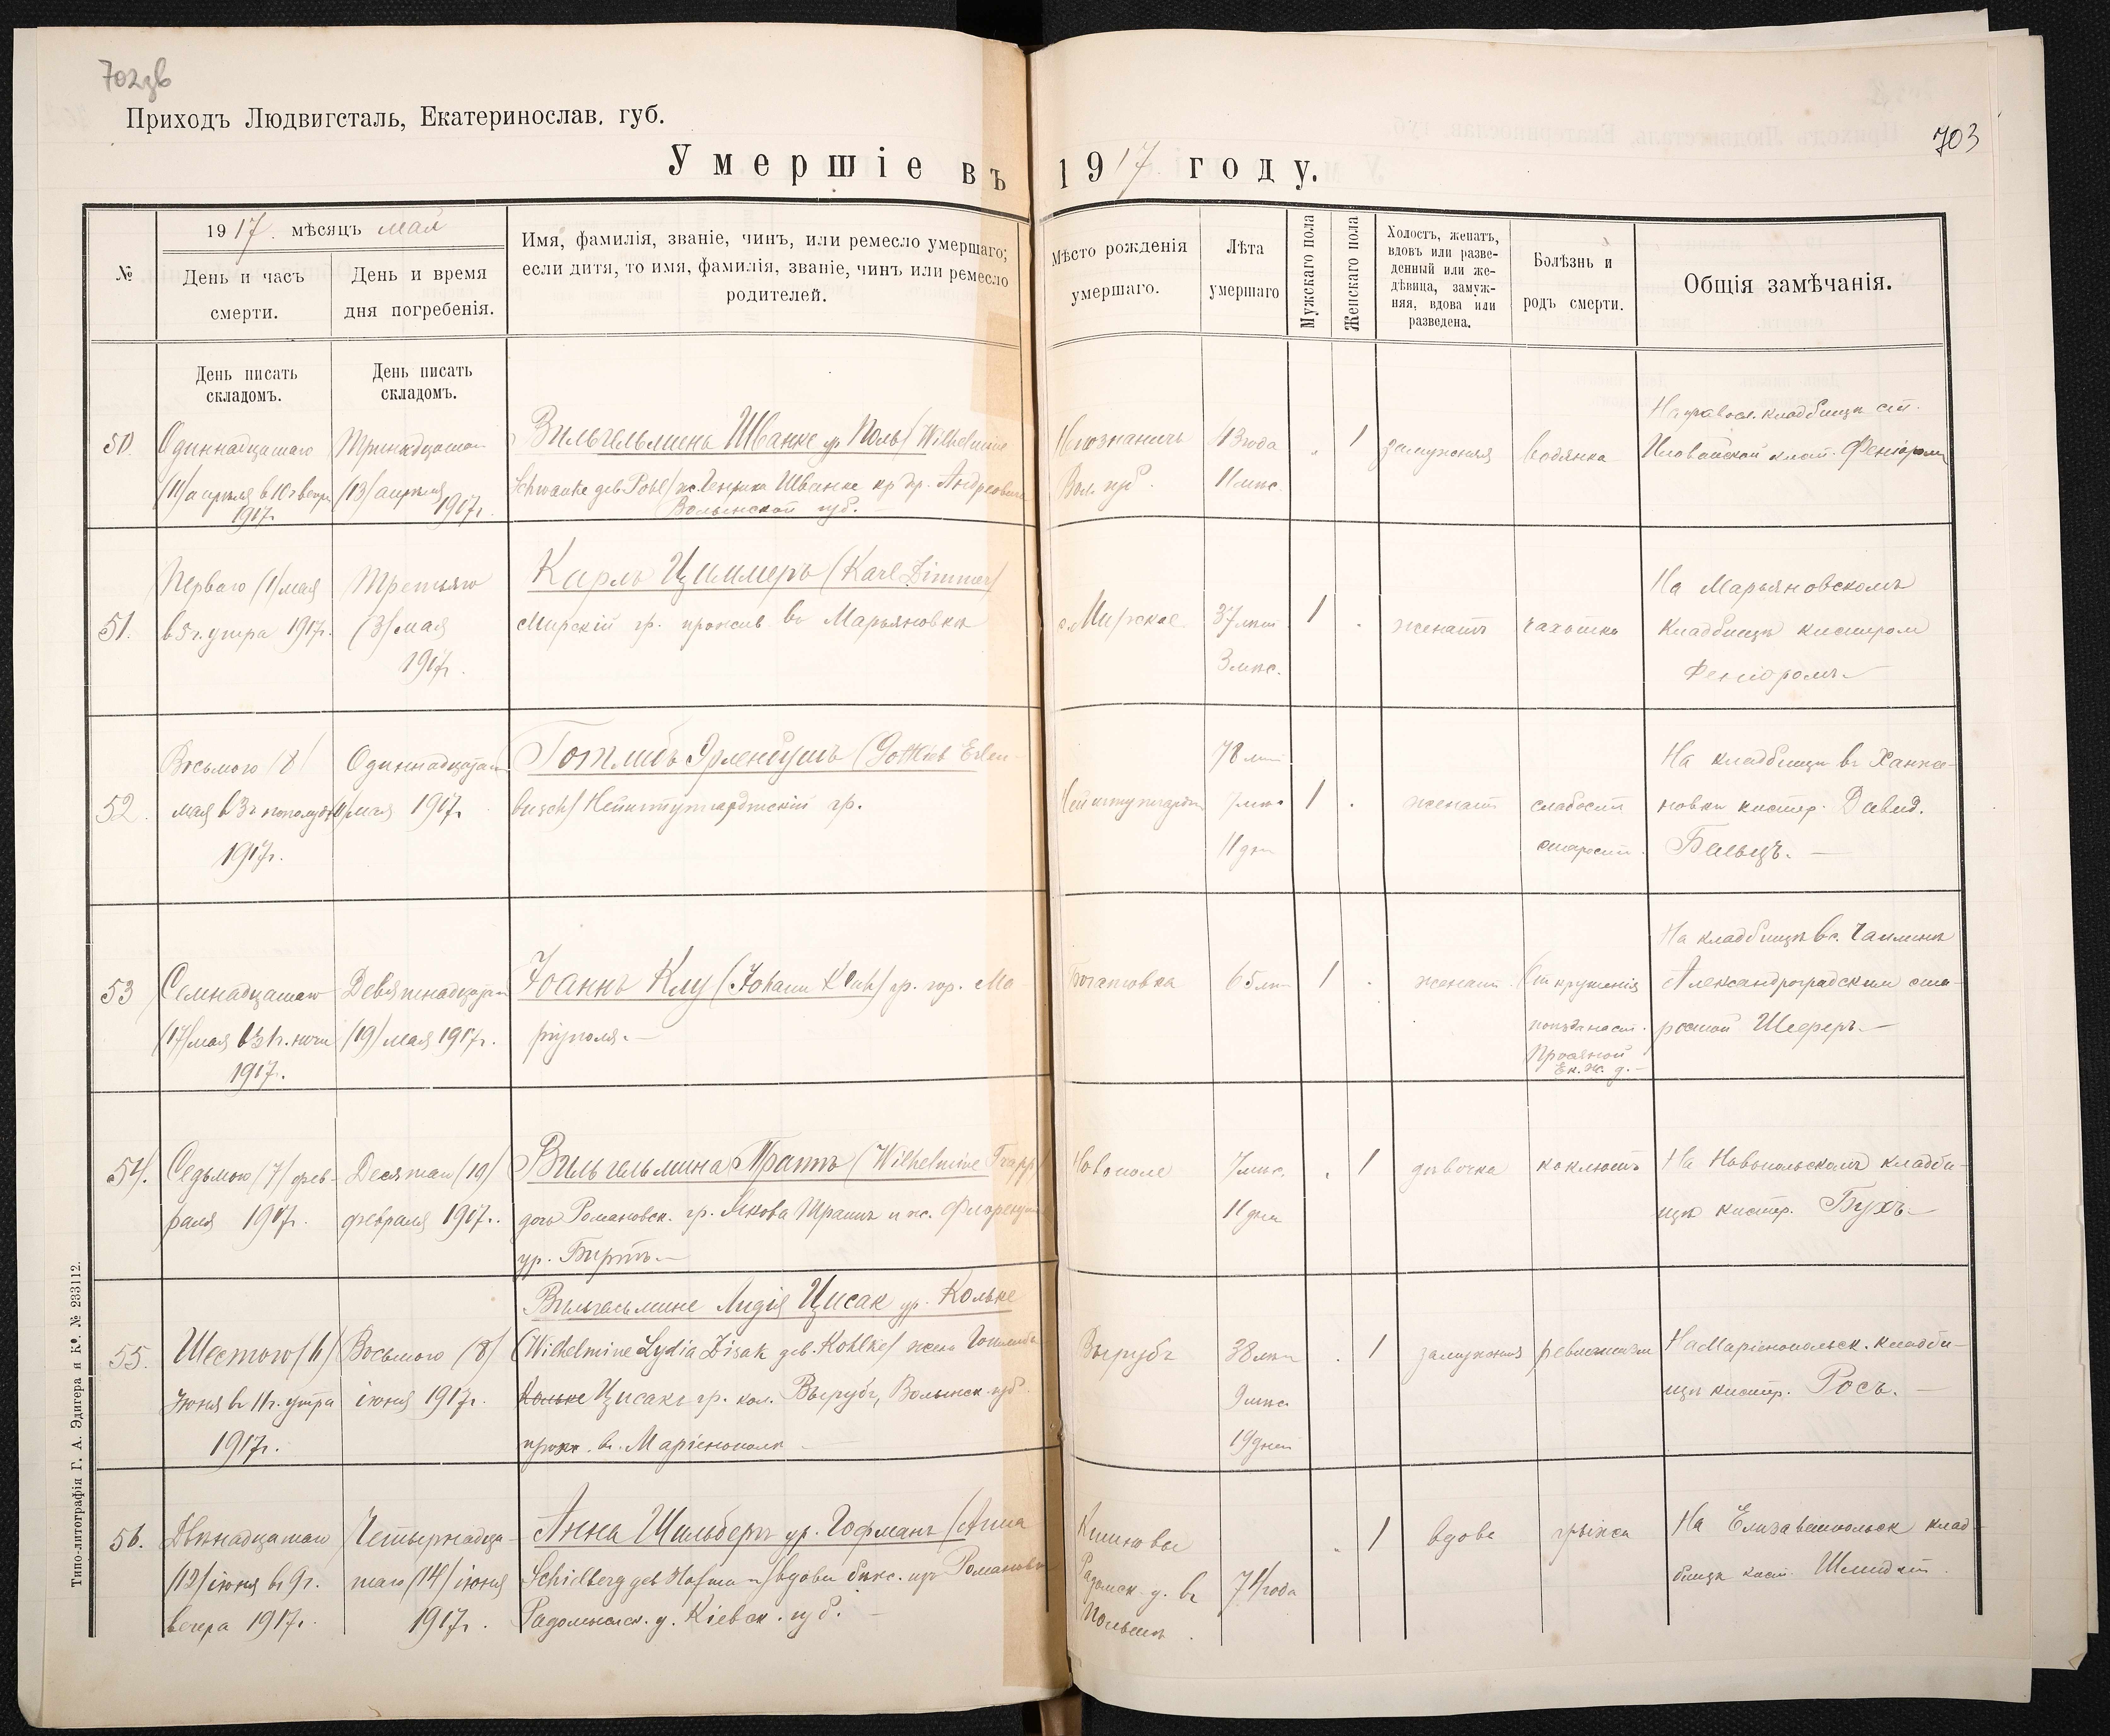 702зв
Приходъ Людвигсталь, Екатеринослав. губ.
703
Умершіе въ 1917 году.
№
1917 мѣсяцъ май
День и часъ смерти.
День и время дня погребенія.
Имя, фамилія, званіе, чинъ, или ремесло умершаго;
если дитя, то имя, фамилія, званіе, чинъ или ремесло
родителей.
Мѣсто рожденія
умершаго.
Лѣта
умершаго
Мужскаго пола
Женскаго пола
Холостъ, женатъ,
вдовъ или разве-
денный или же-
дѣвица, замуж-
няя, вдова или
разведена.
Болѣзнь и
родъ смерти.
Общія замѣчанія.
День писать
складомъ.
День писать
складомъ.
50.
Одиннадцатаго
(11) апреля в 10 г вечера
1917.
Тринадцатаго
(13) апреля
1917г.
Вильгельмина Шванке ур. Поль (Wilhelmine
Schwanke geb. Pohl) ж. Генриха Шванке
Волынской губ.
Вол. губ.
43 года
11 мѣс.
1
замужняя
водянка
На правосл. кладбищѣ ст.
Иловайской
51.
Перваго (1) мая
в 5 г. утра 1917г.
Третьяго
(3) мая
1917г.
Карль Циммеръ (Karl Zimmer)
Мирскій гр. прожив въ Марьяновкѣ
Мирское
37 лѣт
3 мѣс.
1
женатъ
чахотка
На Марьяновскомъ
кладбищѣ кистером
52.
Восьмого (8)
мая в 3 г пополудн
1917г.
Одиннадцатаго
(11) мая 1917г.
Готлибъ Эрленбушъ (Gottlieb Erlen-
busch) Нейштутгардтскій гр.
Нейштутгардтъ
78 лѣт
7 мѣс
11 дн
1
женатъ
слабость
старости.
На кладбищѣ въ Ханже-
новкѣ кистер. Давид.
Бальцъ.
53
Семнадцатаго
(17) мая в 3 г. ночи
1917.
Девятнадцатаго
(19) мая 1917г.
Іоаннъ Клу (Johann Kluh) гр. гор. Ма-
ріуполя.
Богатовка
65 лѣт
1
женатъ
От крушенія
поѣзда на ст.
Просяной
Ек. ж. д.
На кладбищѣ
Александроградским ста-
ростой Шеферъ.
54.
Седьмого (7) фев-
раля 1917г.
Десятаго (10)
февраля 1917г.
Вильгельмина Траппъ (Wilhelmine Trapp)
дочь Романовск. гр. Якова Траппъ и ж.
ур. Биртъ.
Новополе
7 мѣс.
11 дня
1
дѣвочка
коклюшъ
На Новопольскомъ кладби-
щѣ кистер. Бухъ.
55.
Шестого (6)
Іюня въ 11 г. утра
1917г.
Восьмого (8)
іюня 1917г.
Вильгельмине Лидія Цисак ур. Кольке
(Wilhelmine Lydia Zisak geb. Kohlke) жена Готлиба
Кольке Цисакъ гр. кол. Вырубъ, Волынск. губ.
прож. въ Маріенополѣ
Вырубъ
38 лѣт
9 мѣс
19 дней
1
замужняя
ревматизм
На Маріенопольск. кладби-
щѣ кистер. Росъ.
56.
Двѣнадцатаго
(12) іюня въ 9 г.
вечера 1917г.
Четырнадца-
таго (14) іюня
1917г.
Анна Шильберг ур. Гофманъ (Anna
Schielberg geb Hofmann) вдова
Радомысл. у. Кіевск. губ.
Радомск. у. въ
Польшѣ.
74 года
1
вдова
грыжа
На Елизаветпольск клад-
бищѣ кист. Шмидтъ.
Типо-литографія Г. А. Эдигера и К°. № 233112.